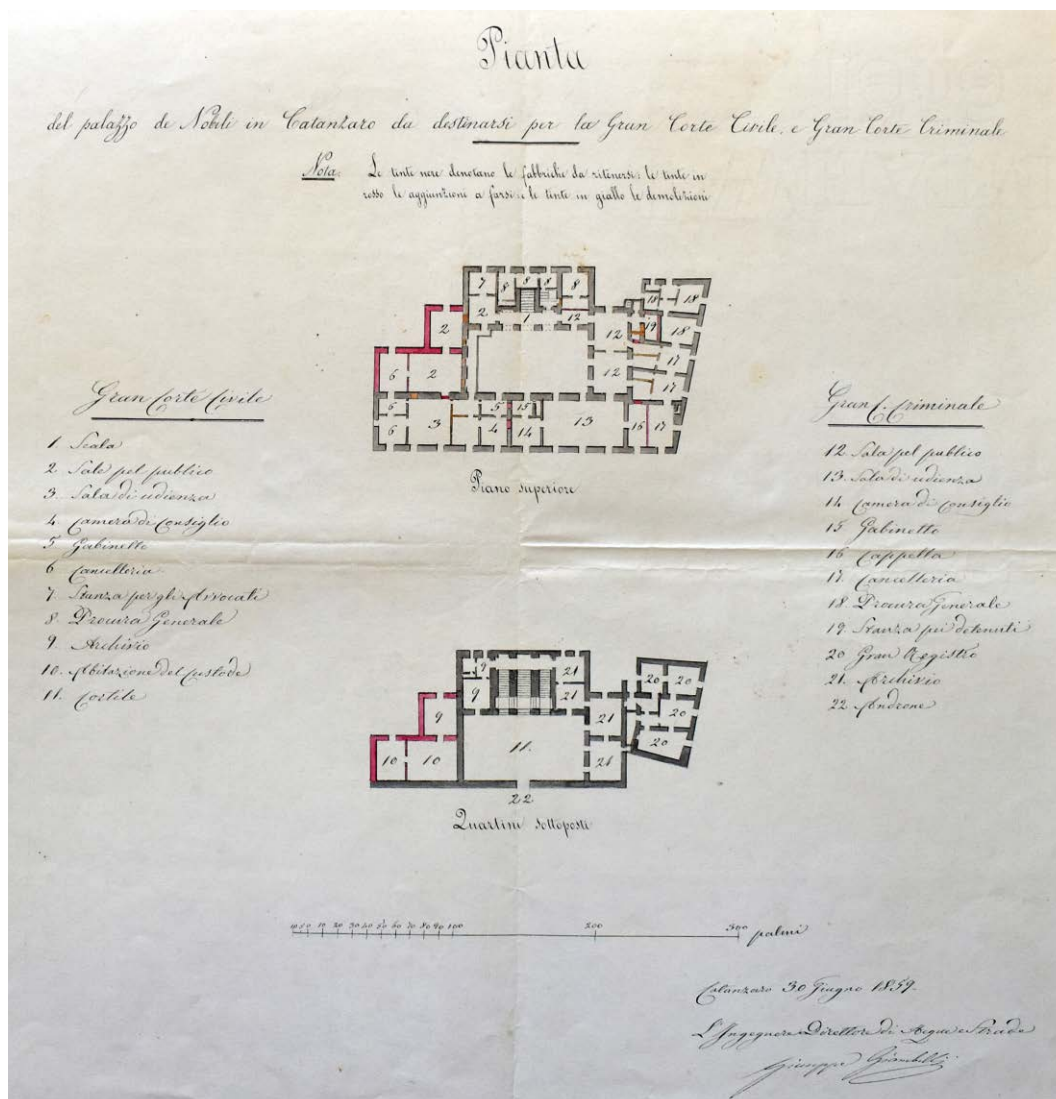 Pianta
del palazzo de Nobili in Catanzaro da destinarsi per la Gran Corte Civile, e Gran Corte Criminale
Nota. Le tinte nere denotano le fabbriche da ritenersi: le tinte in
rosso le aggiunzioni a farsi: e le tinte in giallo le demolizioni
7 8 8 8 8
2 1 12
2 12 18 18
19 18
6 2 12 17
17
6 3 5 15 13 16 17
6 4 14
Piano superiore
Gran Corte Civile
1. Scala
2 Sale pel publico
3. Sala di udienza
4. Camera di Consiglio
5 Gabinetto
6 Cancelleria
7. Stanza per gli Avvocati
8. Procura Generale
9. Archivio
10. Abitazione del Custode
11. Cortile
Gran C. Criminale
12. Sala pel publico
13. Sala di udienza
14. Camera di Consiglio
15 Gabinetto
16 Cappella
17. Cancelleria
18. Procura Generale
19. Stanza pei detenuti
20 Gran Registro
21. Archivio
22 Androne
9 21 20 20
9 21
9 21 20
10 10 11. 21 20
22
Quartini sottoposti
10 20 30 40 50 60 70 80 90 100 200 300 palmi
Catanzaro 30 Giugno 1859.
L'Ingegnere Direttore di Acque e Strade
Giuseppe